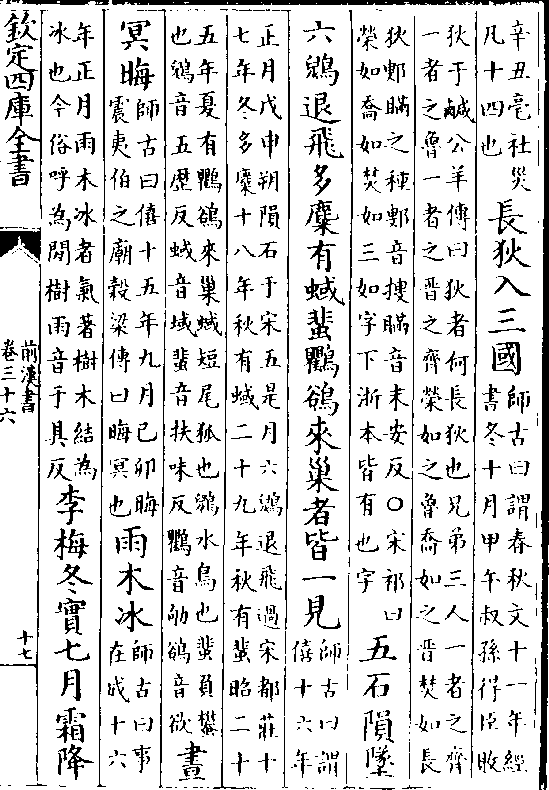 辛丑亳社災
凡十四也
長狄入三國
師古曰謂春秋文十一年經
書冬十月甲午叔孫得臣敗
狄于鹹公羊傳曰狄者何長狄也兄弟三人一者之齊
一者之魯一者之晉之齊榮如之魯喬如之晉焚如長
狄鄋瞞之種鄋音搜瞞音末安反○宋祁曰
榮如喬如焚如三如字下浙本皆有也字
五石隕墜
六鶂退飛多麋有蜮蜚鸜鵒來巢者皆一見
師古曰謂
僖十六年
正月戊申朔隕石于宋五是月六鶂退飛過宋都莊十
七年冬多麋十八年秋有蜮二十九年秋有蜚昭二十
五年夏有鸜鵒來巢蜮短尾狐也鶂水鳥也蜚負蠜
也鶂音五歴反蜮音域蜚音扶味反鸜音劬鵒音欲
晝
冥晦
師古曰僖十五年九月己卯晦
震夷伯之廟穀梁傳曰晦冥也
雨木冰
師古曰事
在成十六
年正月雨木冰者氣著樹木結為
冰也今俗呼為閒樹雨音于具反
李梅冬實七月霜降
欽定四庫全書
前漢書
卷三十六
十七